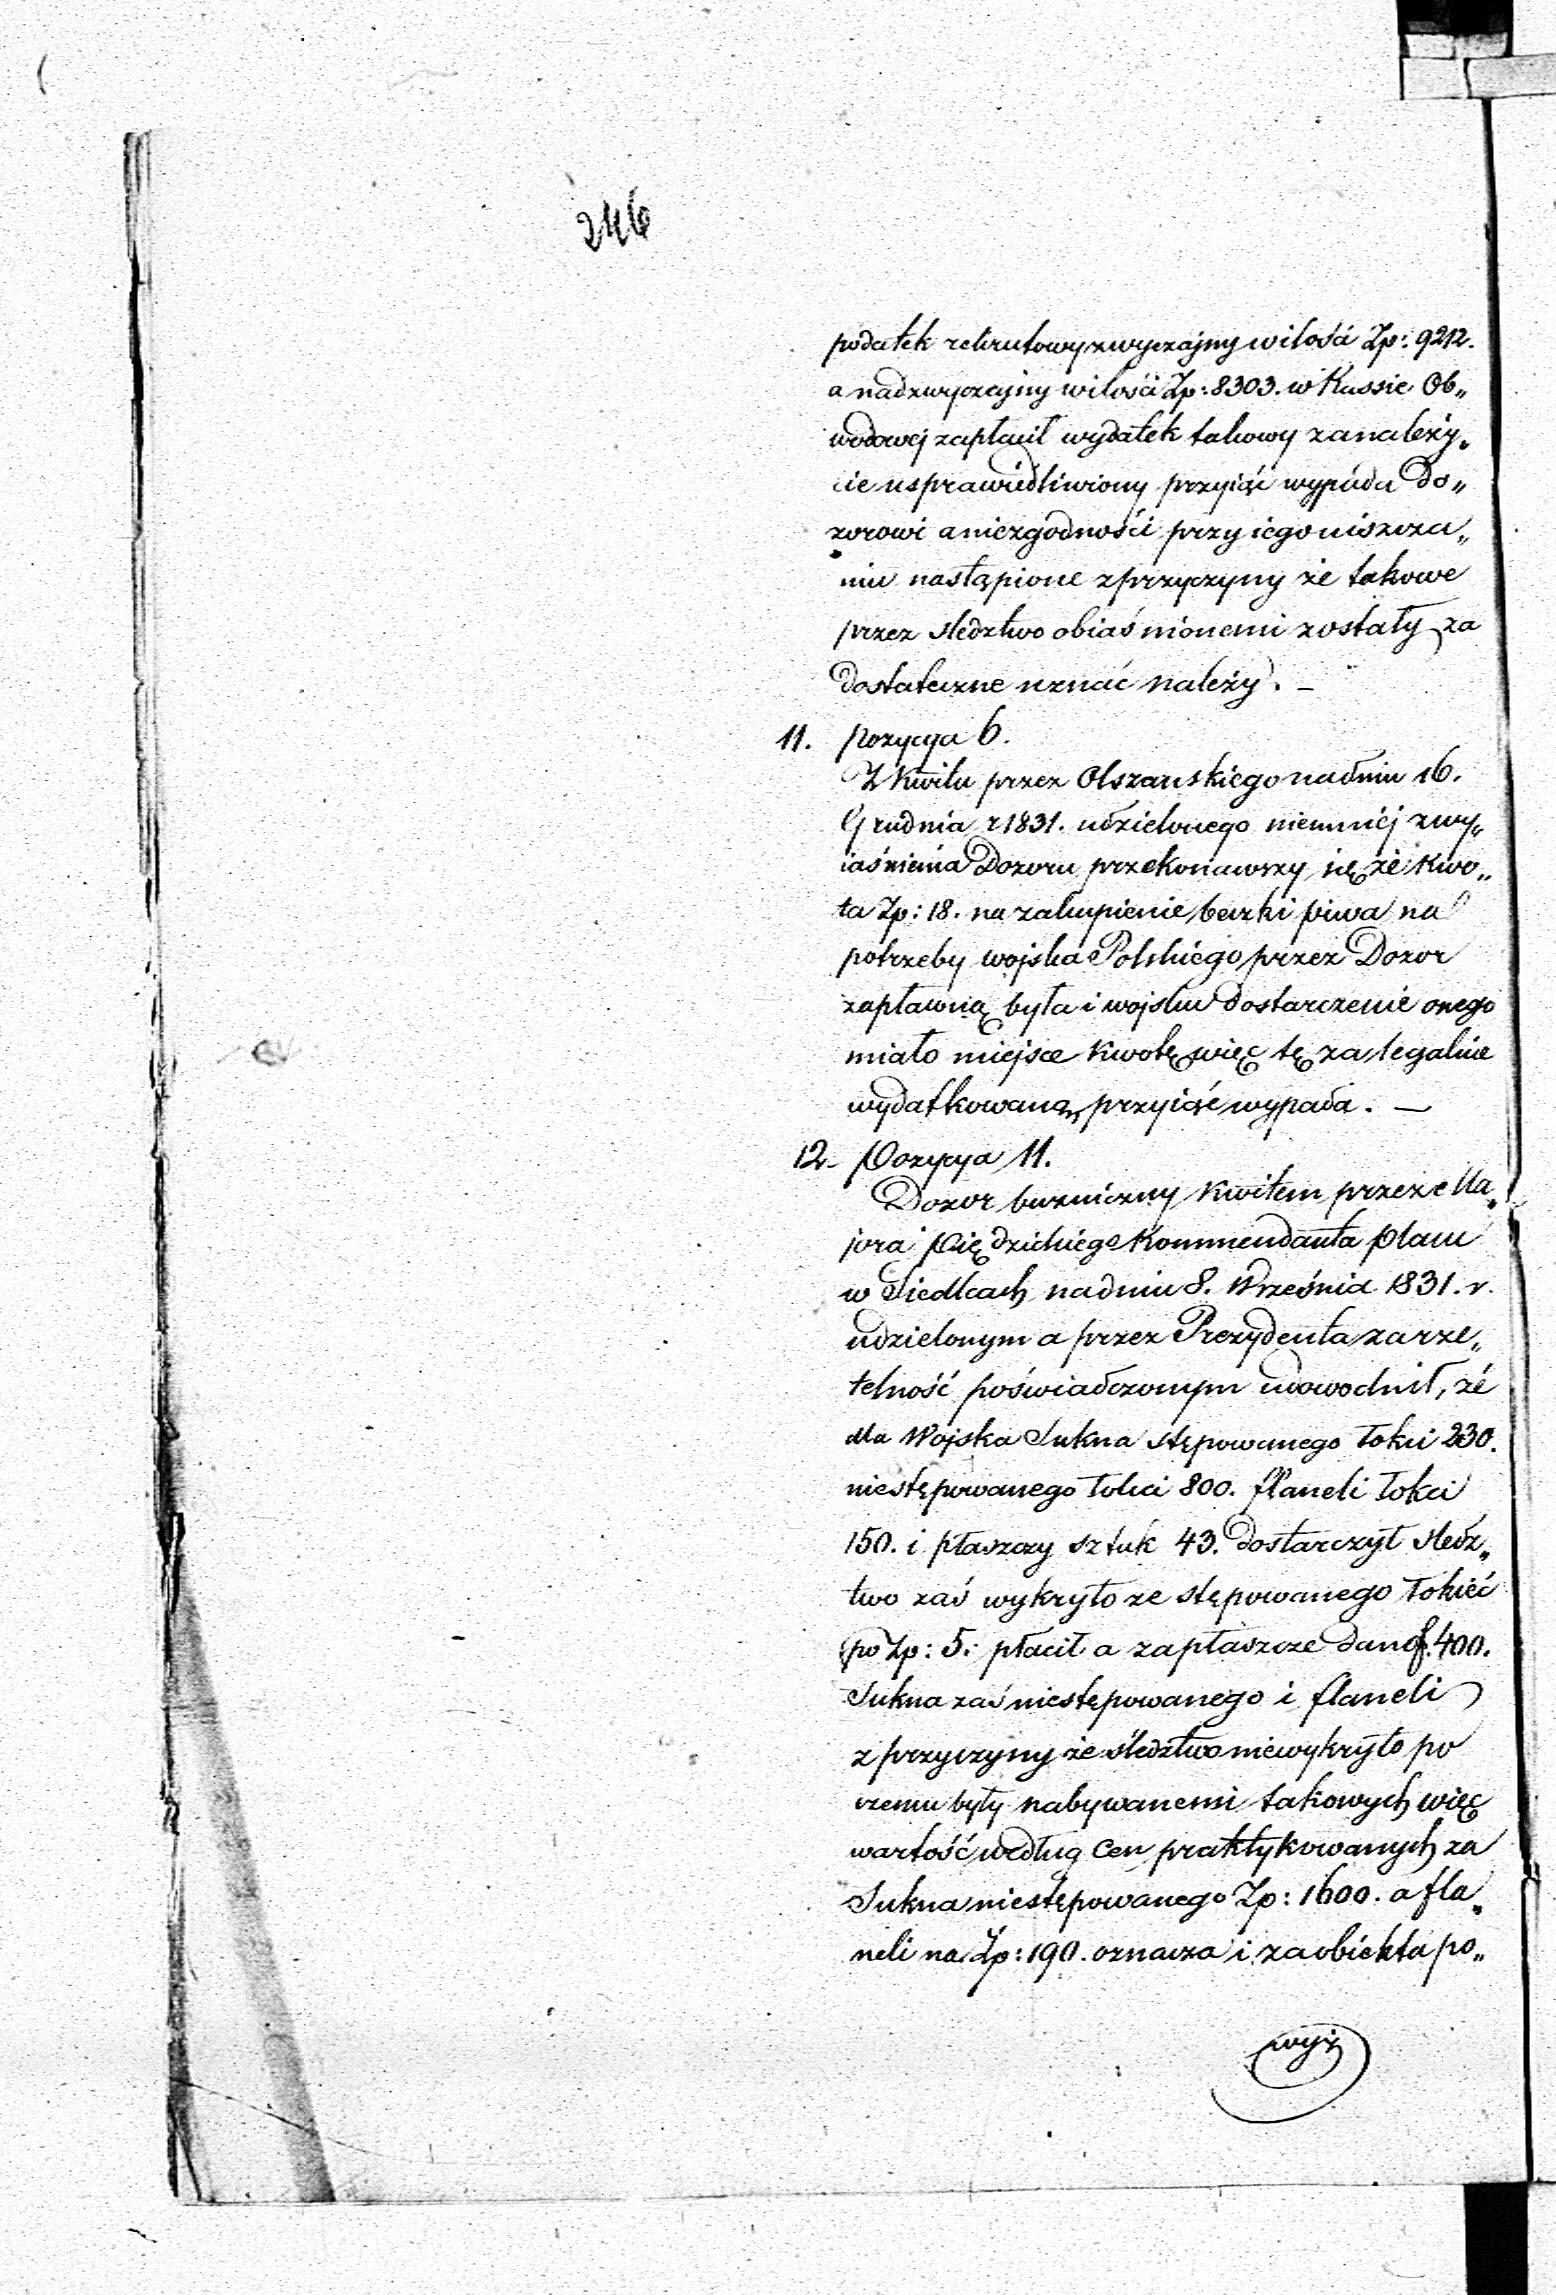 246
podatek rekrutowy zwyczajny w ilości Zp: 9212.
a nadzwyczajny w ilości Zp: 8303. w Kassie Ob„
wodowej zapłacił wydatek takowy za należy„
cie usprawiedliwiony przyiąć wypada Do„
zorowi a niezgodności przy iego uiszcza„
niu nastąpione z przyczyny że takowe
przez sledztwo obiaśnionemi zostały za
dostateczne uznać należy. —
11. pozycya 6.
Z Kwitu przez Olszanskiego na dniu 16.
Grudnia r 1831. udzielonego niemniéj z wy„
iaśnienia Dozoru przekonawszy się że Kwo„
ta Zp: 18. na zakupienie beczki piwa na
potrzeby wojska Polskiego przez Dozor
zapłaconą była i wojsku dostarczenie onego
miało miejsce Kwotę więc tę za legalnie
wydatkowaną przyiąść wypada. —
12. Pozycya 11.
Dozor bużniczny Kwitem przez Ma„
jora Kommendanta placu
w Siedlcach na dniu 8. Września 1831. r.
udzielonym a przez Prezydenta za rze„
telność poświadczonym udowodnił, że
dla Wojska Sukna stępowanego łokci 230.
niestępowanego łokci 800. flaneli łokci
150. i płaszczy sztuk 43. dostarczył sledz„
two zaś wykryło ze stępowanego łokieć
po Zp: 5. płacił a za płaszcze dano f. 400.
Sukna zaś niestępowanego i flaneli
z przyczyny że śledztwo niewykryło po
czemu były nabywanemi takowych więc
wartość według Cen praktykowanych za
Sukna niestępowanego Zp: 1600. a fla„
neli na Zp: 190. oznacza i za obiekta po„
wyż